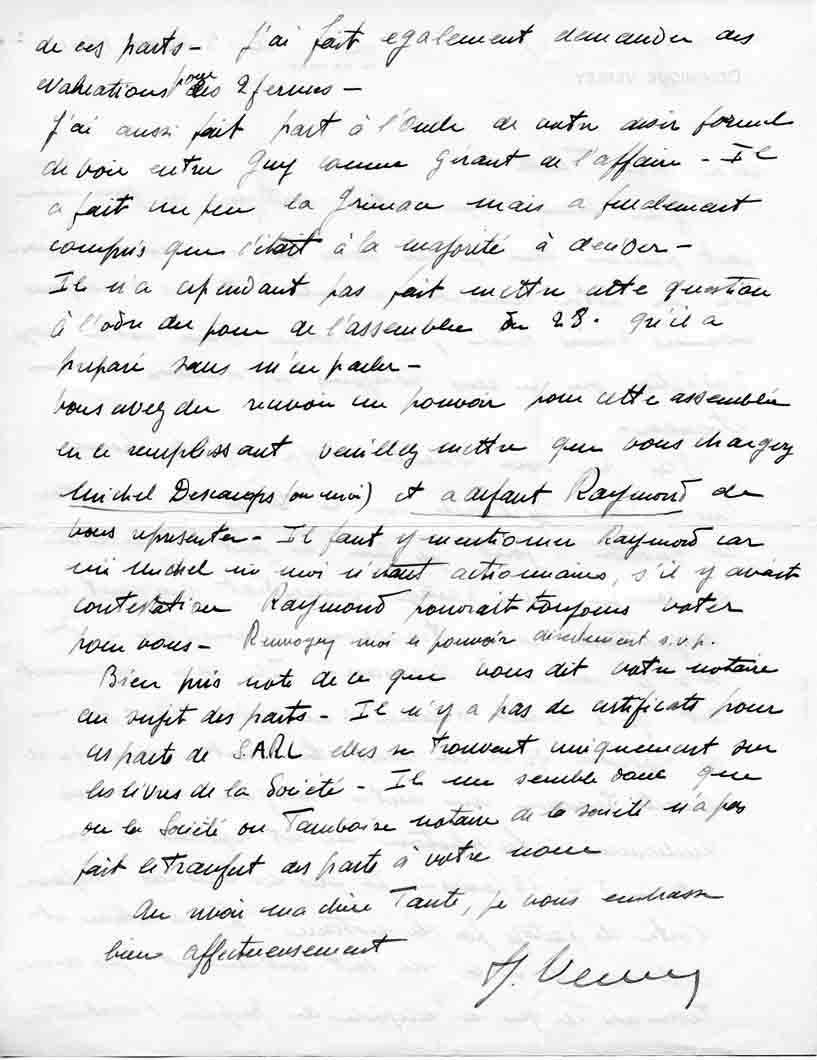 de ces parts - J'ai fait egalement demander des
evaluations pour les 2 fermes -
J'ai aussi fait part à l'Oncle de votre desir formel
de voir entrer Guy comme Gérant de l'affaire - Il
a fait un peu la grimace mais a finalement
compris que c'était à la majorité à decider -
Il n'a cependant pas fait mettre cette question
à l'ordre du jour de l'assemblée du 28. qu'il a
preparé sans m'en parler -
Vous avez du recevoir un pouvoir pour cette assemblée
en le remplissant veuillez mettre que vous chargez
Michel Descamps (ou moi) et a defaut Raymond de
vous representer - Il faut y mentionner Raymond car
ni Michel ni moi n'étant actionnaires, s'il y avait
contestation Raymond pourrait toujours voter
pour vous - Renvoyez moi ce pouvoir directement s.v.p.
Bien pris note de ce que vous dit votre notaire
au sujet des parts - Il n'y a pas de certificats pour
ces parts de S.A.R.L elles se trouvent uniquement sur
les livres de la Société - Il me semble donc que
ou la Société ou Tamboise notaire de la société n'a pas
fait le transfert des parts à votre nom
Au revoir ma chère Tante, je vous embrasse
bien affectueusement